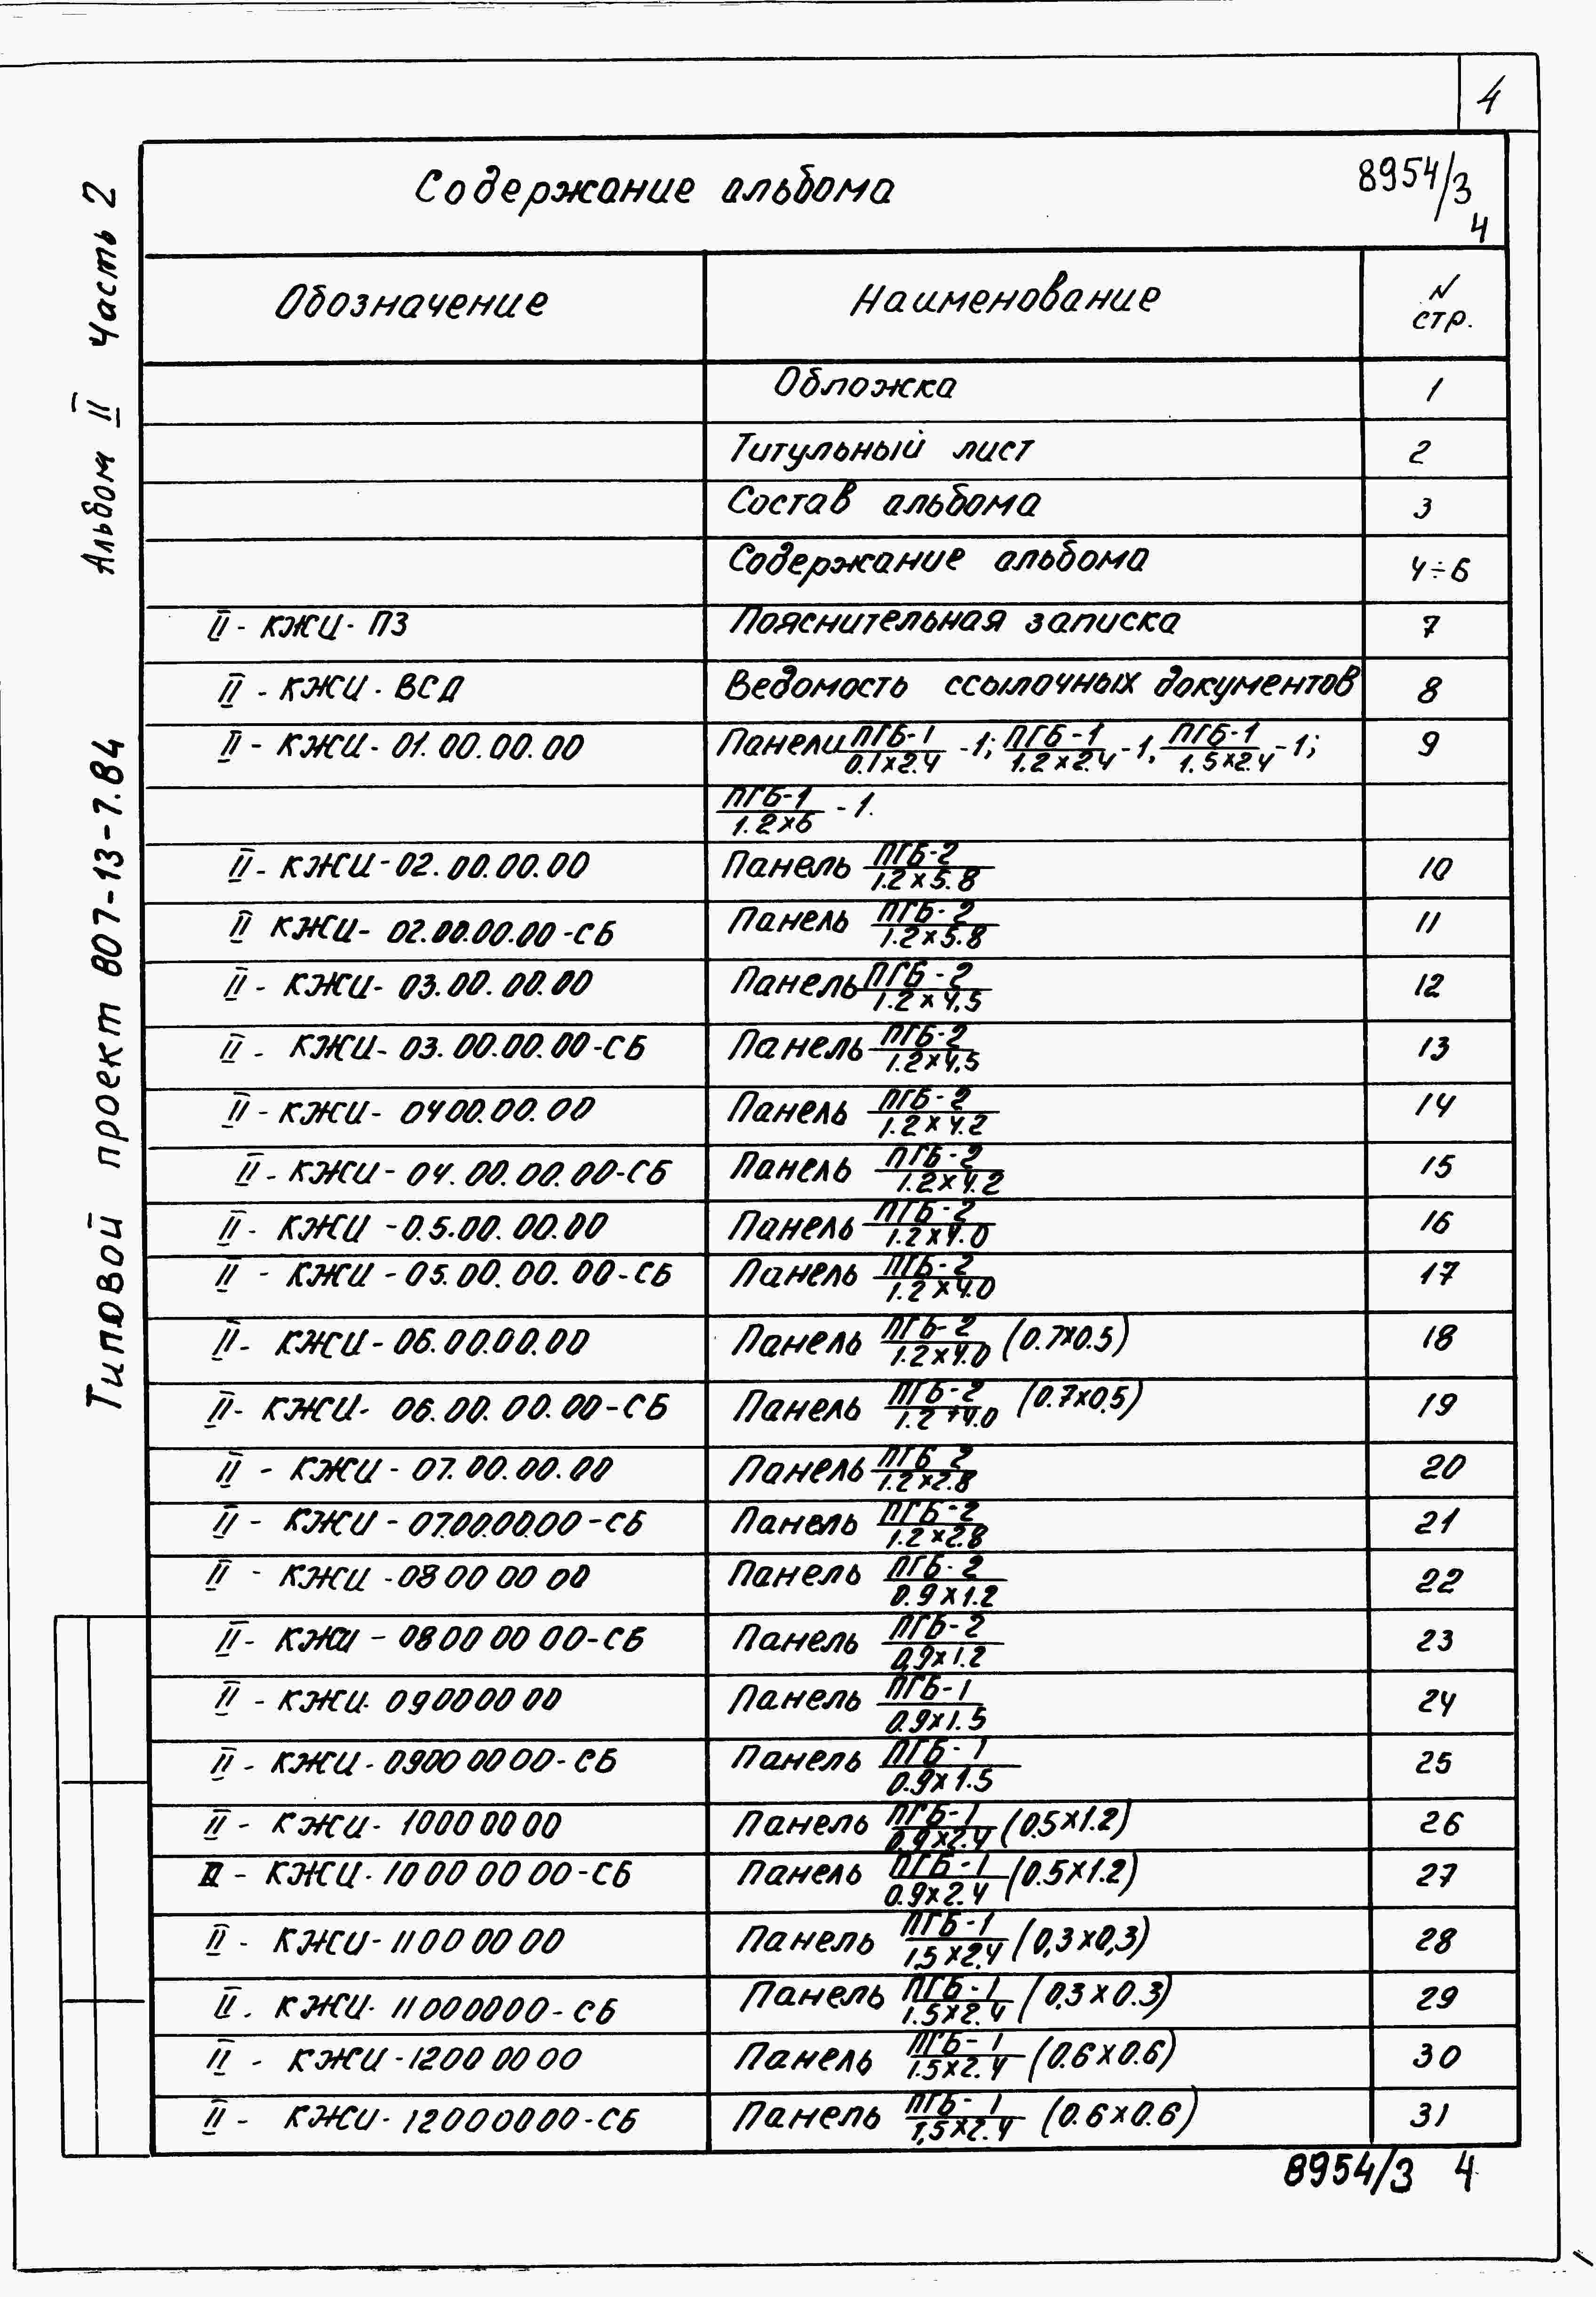 4
Содержание альбома
8954/3
4
Обозначение Наименование N стр.
Обложка 1
Титульный лист 2
Состав альбома 3
Содержание альбома 4÷6
II - КЖИ - ПЗ Пояснительная записка 7
II - КЖИ - ВСД Ведомость ссылочных документов 8
II - КЖИ - 01.00.00.00 Панели ПГБ-1/0.1×2.4 -1; ПГБ-1/1.2×2.4 -1, ПГБ-1/1.5×2.4 -1; 9
ПГБ-1/1.2×6 -1.
II - КЖИ - 02.00.00.00 Панель ПГБ-2/1.2×5.8 10
II КЖИ - 02.00.00.00-СБ Панель ПГБ-2/1.2×5.8 11
II - КЖИ - 03.00.00.00 Панель ПГБ-2/1.2×4,5 12
II - КЖИ - 03.00.00.00-СБ Панель ПГБ-2/1.2×4,5 13
II - КЖИ - 0400.00.00 Панель ПГБ-2/1.2×4.2 14
II - КЖИ - 04.00.00.00-СБ Панель ПГБ-2/1.2×4.2 15
II - КЖИ - 0.5.00.00.00 Панель ПГБ-2/1.2×4.0 16
II - КЖИ - 05.00.00.00-СБ Панель ПГБ-2/1.2×4.0 17
II - КЖИ - 06.00.00.00 Панель ПГБ-2/1.2×4.0 (0.7×0.5) 18
II - КЖИ - 06.00.00.00-СБ Панель ПГБ-2/1.2×4.0 (0.7×0.5) 19
II - КЖИ - 07.00.00.00 Панель ПГБ 2/1.2×2.8 20
II - КЖИ - 07.00.00.00-СБ Панель ПГБ-2/1.2×2.8 21
II - КЖИ - 08 00 00 00 Панель ПГБ-2/0.9×1.2 22
II - КЖИ - 08 00 00 00-СБ Панель ПГБ-2/0,9×1.2 23
II - КЖИ - 09 00 00 00 Панель ПГБ-1/0.9×1.5 24
II - КЖИ - 0900 00 00-СБ Панель ПГБ-1/0.9×1.5 25
II - КЖИ - 1000 00 00 Панель ПГБ-1/0,9×2.4 (0.5×1.2) 26
II - КЖИ - 10 00 00 00-СБ Панель ПГБ-1/0.9×2.4 (0.5×1.2) 27
II - КЖИ - 1100 00 00 Панель ПГБ-1/1,5×2.4 (0,3×0,3) 28
II - КЖИ - 11000000-СБ Панель ПГБ-1/1.5×2.4 (0,3×0.3) 29
II - КЖИ - 1200 00 00 Панель ПГБ-1/1.5×2.4 (0.6×0.6) 30
II - КЖИ - 12000000-СБ Панель ПГБ-1/1,5×2.4 (0.6×0.6) 31
8954/3 4
Типовой проект 807-13-7.84 Альбом II Часть 2